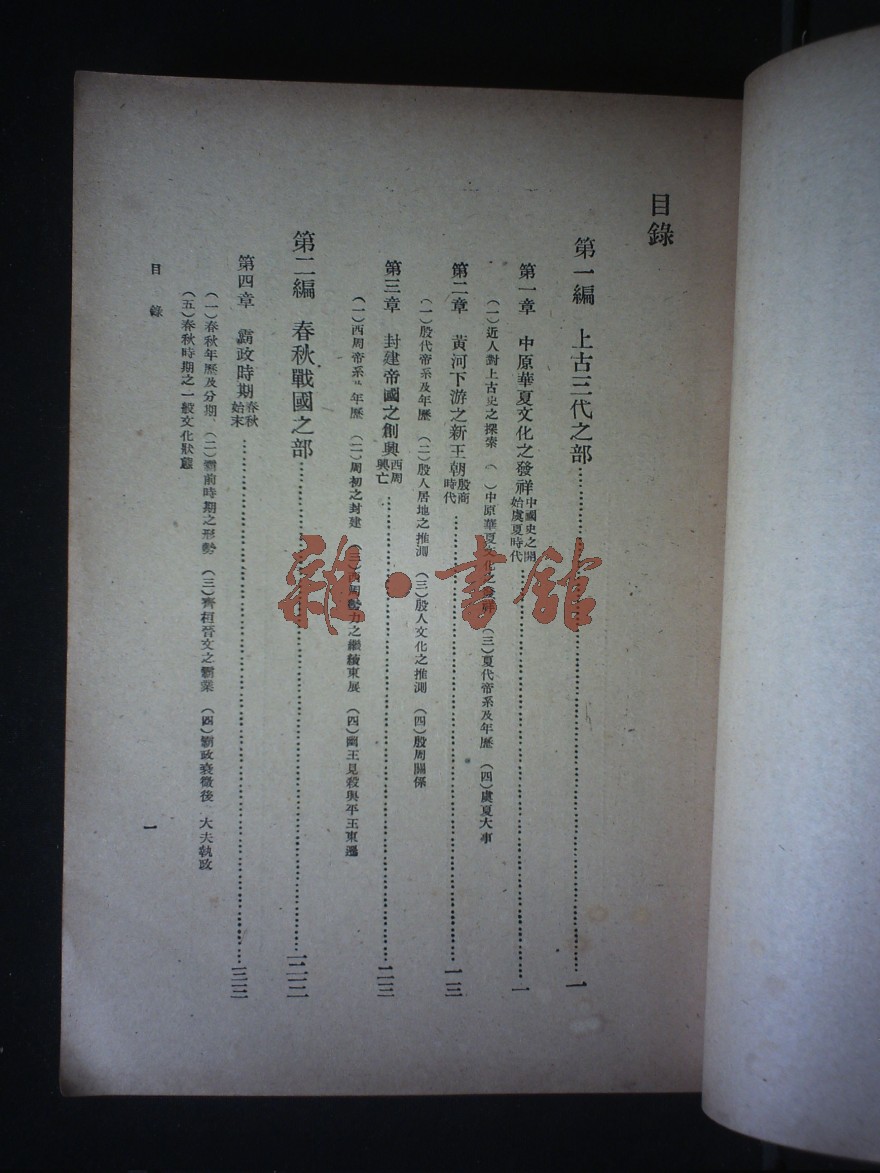 目錄
第一編 上古三代之部……一
第一章 中原華夏文化之發祥中國史之開始虞夏時代……一
(一)近人對上古史之探索 ( )中原華夏文化之發祥 (三)夏代帝系及年歷 (四)虞夏大事
第二章 黃河下游之新王朝殷商時代……一三
(一)殷代帝系及年歷 (二)殷人居地之推測 (三)殷人文化之推測 (四)殷周關係
第三章 封建帝國之創興西周興亡……二三
(一)西周帝系及年歷 (二)周初之封建 (三)西周勢力之繼續東展 (四)幽王見殺與平王東遷
第二編 春秋戰國之部……三三
第四章 霸政時期春秋始末……三三
(一)春秋年歷及分期 (二)霸前時期之形勢 (三)齊桓晉文之霸業 (四)霸政衰微後 大夫執政
(五)春秋時期之一般文化狀態
目錄
一
雜·書館